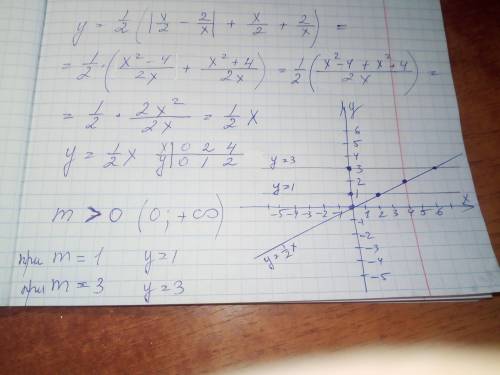 y = 1/2 (|x/2 - 2/x| + x/2 + 2/x) =
= 1/2 · (x²-4/2x + x²+4/2x) = 1/2 (x²-4+x²+4/2x) =
= 1/2 · 2x²/2x = 1/2 x
y = 1/2 x x | 0 2 4
y | 0 1 2
m > 0 (0; +∞)
при m = 1 y = 1
при m = 3 y = 3
y
6
5
4
y = 3 3
2
y = 1 1
-5 -4 -3 -2 -1 0 1 2 3 4 5 6 x
-1
-2
-3
-4
-5
y = 1/2 x